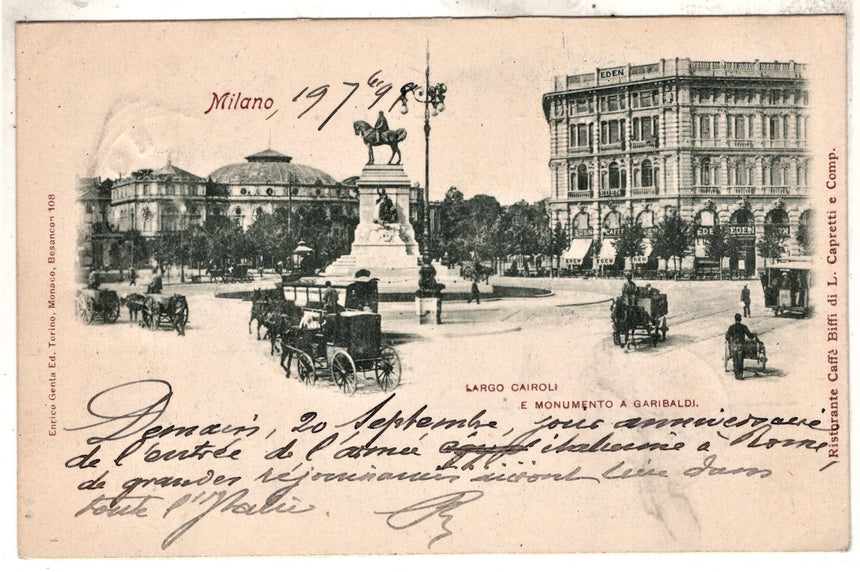 Milano, 19 7bre 98
EDEN
EDEN
EDEN
CAFFÈ
EDEN
EDEN
EDEN
EDEN
LARGO CAIROLI
E MONUMENTO A GARIBALDI.
Demain, 20 Septembre, jour anniversaire
de l'entrée de l'armée italienne à Rome,
de grandes réjouissances auront lieu dans
toute l'Italie.
Enrico Genta Ed. Torino, Monaco, Besançon 108
Ristorante Caffè Biffi di L. Capretti e Comp.